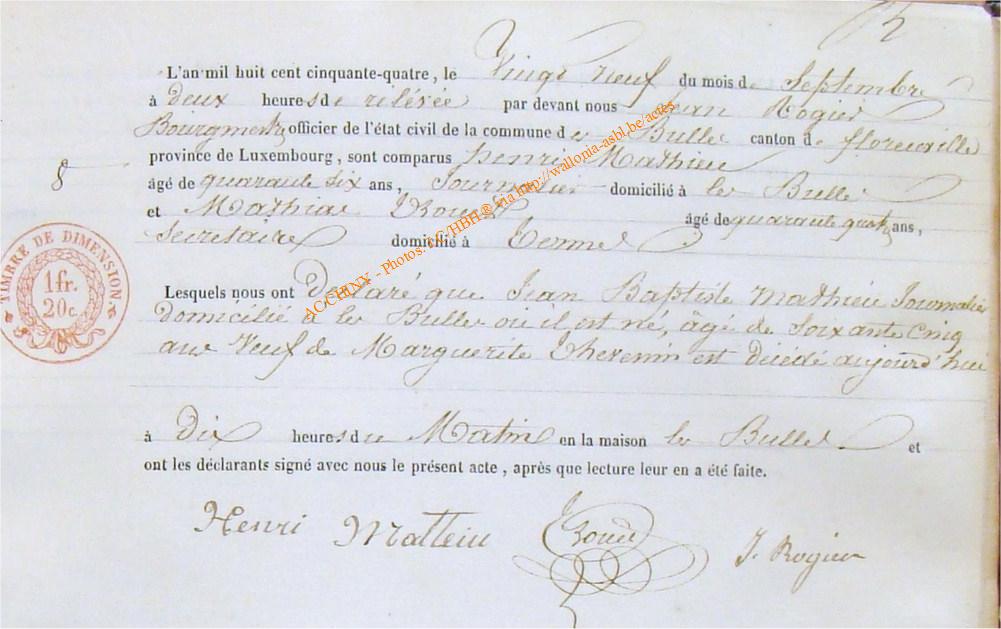 12
L'an mil huit cent cinquante-quatre, le Vingt neuf du mois de Septembre
à deux heures de relévée par devant nous Jean Rogier
Bourgmestre officier de l'état civil de la commune de les Bulles canton de florenville
province de Luxembourg, sont comparus henri Mathieu
âgé de quarante six ans, Journalier domicilié à les Bulles
et Mathias âgé de quarante quatre ans,
Secretaire domicilié à Termes
8
TIMBRE DE DIMENSION.
1 fr.
20 c.
AC CHINY - Photos: LC/HBH® via http://wallonia-asbl.be/actes
Lesquels nous ont Déclaré que Jean Baptiste Mathieu Journalier
Domicilié à les Bulles où il est né, âgé de Soixante Cinq
ans Veuf de Marguerite Thevenin est décédé aujourd'hui
à Dix heures du Matin en la maison les Bulles et
ont les déclarants signé avec nous le présent acte, après que lecture leur en a été faite.
Henri Mattein J. Rogier